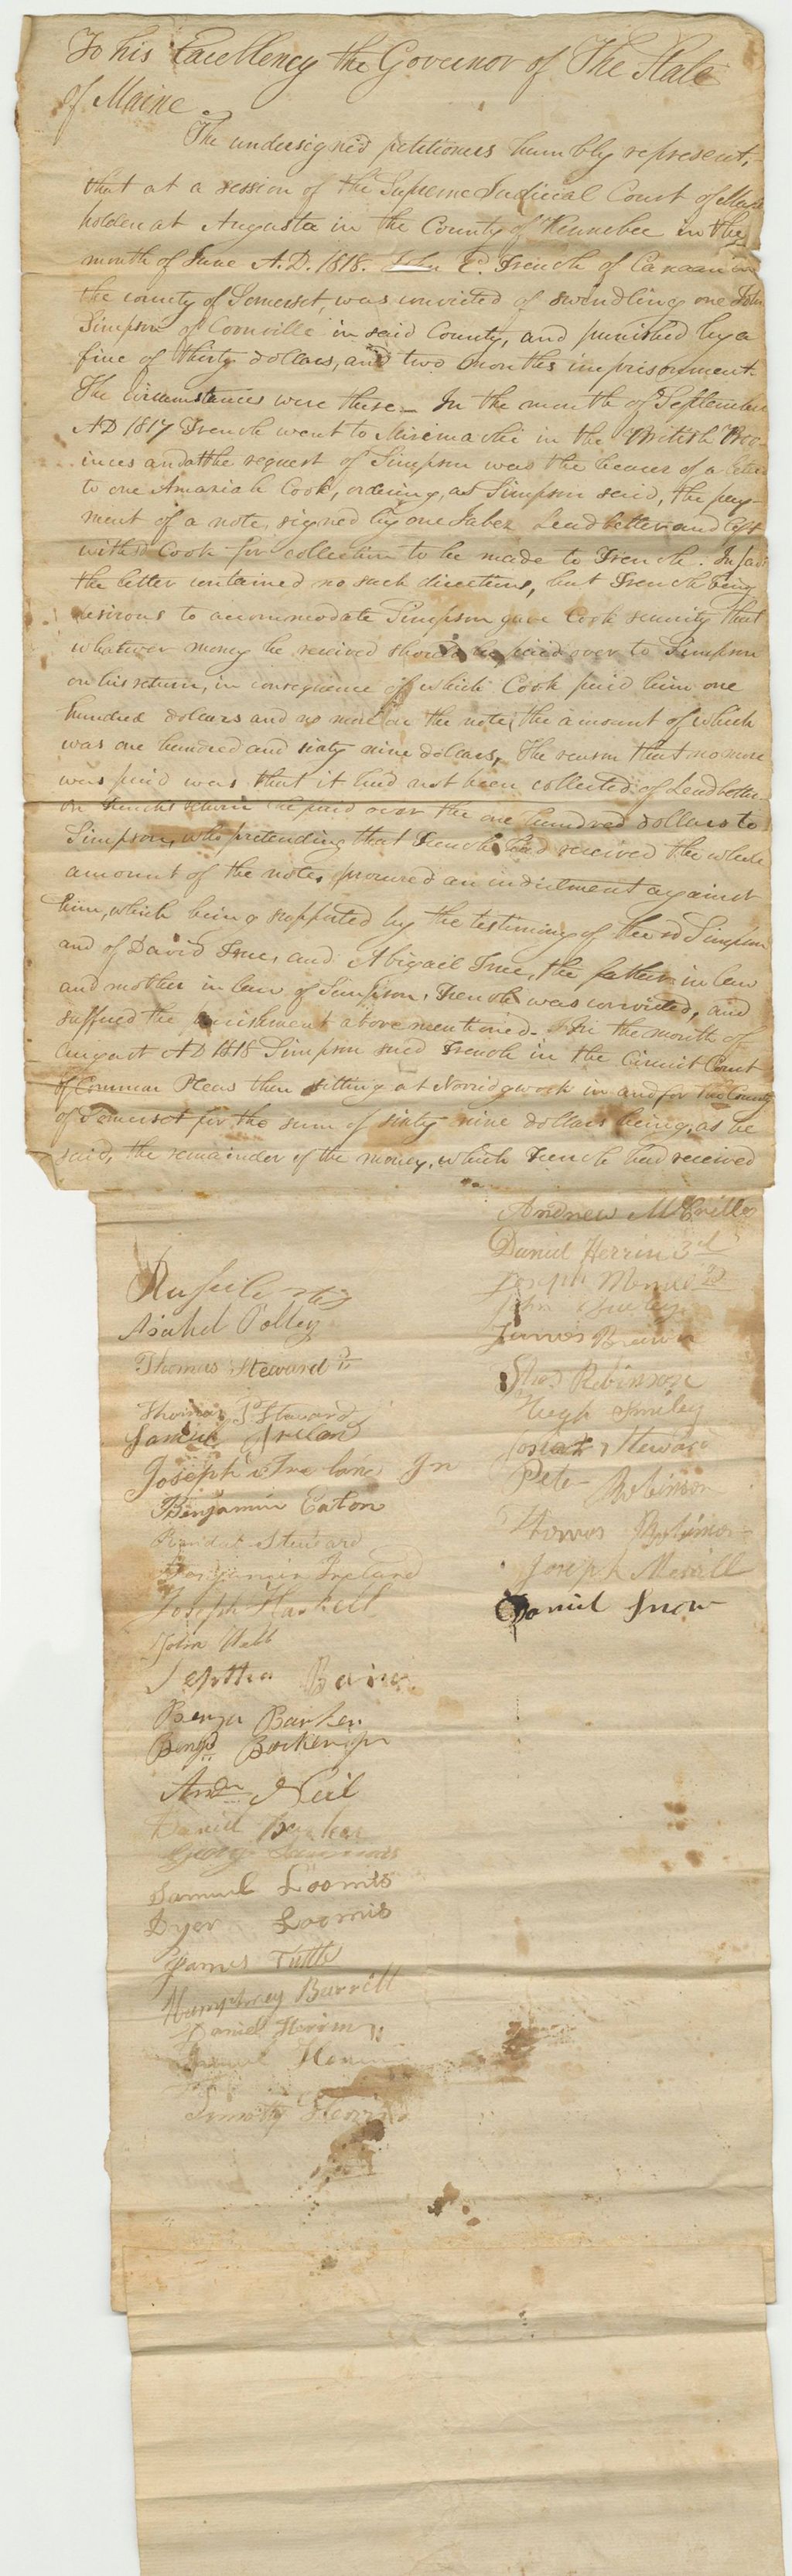 To his Excellency the Governor of The State
of Maine.
The undersigned petitioners humbly represent,
that at a session of the Supreme Judicial Court of Mass
holden at Augusta in the County of Kennebec in the
month of June A.D. 1818. John French of Canaan in
the county of Somerset, was convicted of swindling one John
Simpson of Cornville in said County, and punished by a
fine of thirty dollars, and two months imprisonment.
The circumstances were these - In the month of September
AD 1817 French went to Mirimachi in the British Prov-
inces and at the request of Simpson was the bearer of a letter
to one Amaziah Cook, ordering, as Simpson said, the pay-
ment of a note, signed by one Jabez Leadbetter and left
with sd Cook for collection to be made to French. In fact
the letter contained no such directions, but French being
desirous to accommodate Simpson gave Cook security that
whatever money he received should be paid over to Simpson
on his return, in consequence of which Cook paid him one
hundred dollars and no more on the note, the amount of which
was one hundred and sixty nine dollars, The reason that no more
was paid was that it had not been collected of Leadbetter
on Frenchs return he paid over the one hundred dollars to
Simpson, who pretending that French had received the whole
amount of the note, procured an indictment against
him, which being supported by the testimony of the sd Simpson
and of David True, and Abigail True, the father in law
and mother in law of Simpson, French was convicted, and
suffered the punishment above mentioned - In the month of
August AD 1818 Simpson sued French in the Circuit Court
of Common Pleas then sitting at Norridgwock in and for the County
of Somerset for the sum of sixty nine dollars being, as he
said, the remainder of the money, which French had received
Andrew McCrillis
Daniel Herrin 3d
Joseph Merrill
John
James Brown
Robinson
Hugh Smiley
Josiah Steward
Peter Robinson
Thomas Robinson
Joseph Merrill
Daniel Snow
Asahel Polley
Thomas Steward
Thomas Steward
Samuel Ireland
Joseph Ireland Jr
Benjamin Eaton
Steward
Benjamin Ireland
Joseph Haskell
John Webb
Jeptha
Benja Barker
Benja Barker Jr
Andw Neil
Daniel Barker
George
Samuel Loomis
Dyer Loomis
James Tuttle
Humphrey Burrill
Daniel Herrin
Timothy Herrin